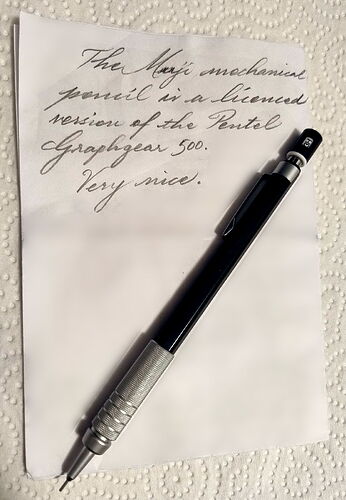 The Muji mechanical
pencil is a licenced
version of the Pentel
Graphgear 500.
Very nice.